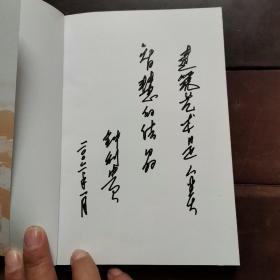 建筑艺术是人类
智慧的结晶
二〇〇二年一月